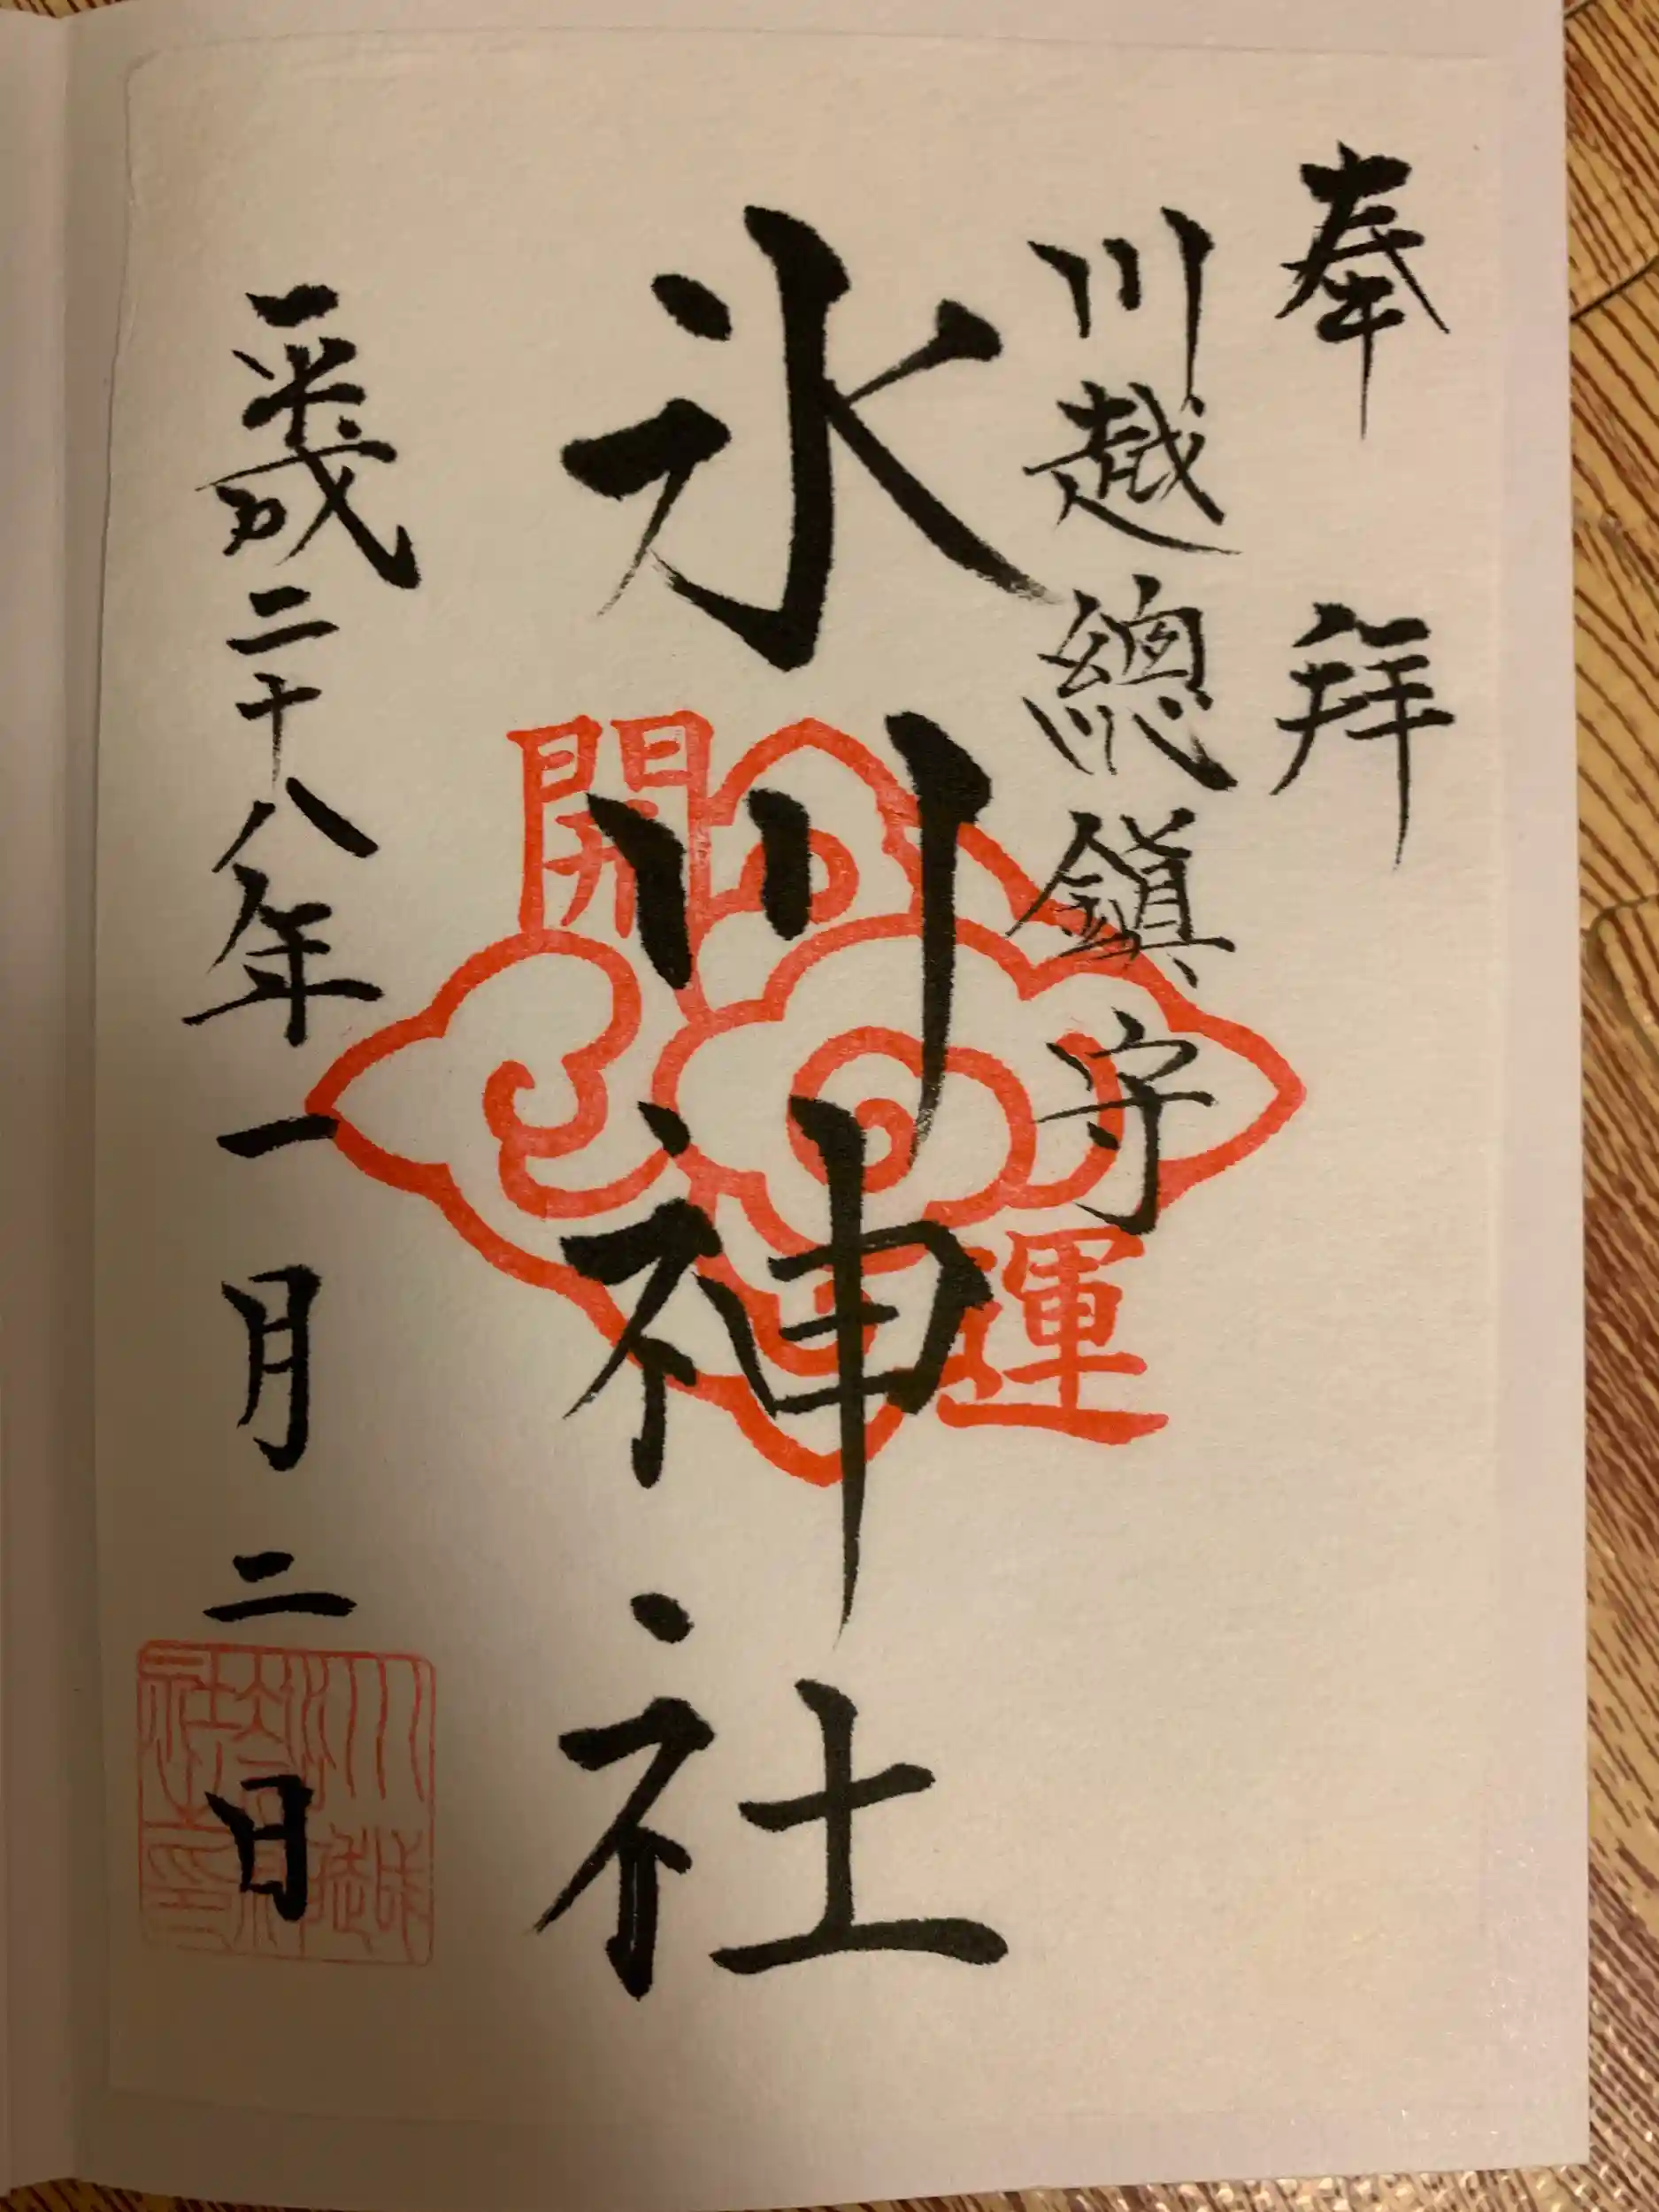 奉拜
川越總鎮守
氷川神社
開運
平成二十八年一月二日
川越氷川神社之印